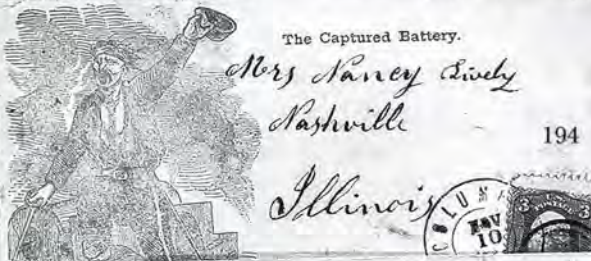 The Captured Battery.
Mrs Nancy Lively
Nashville
194
Illinois
COLUM
NOV
10
3 POSTAGE 3